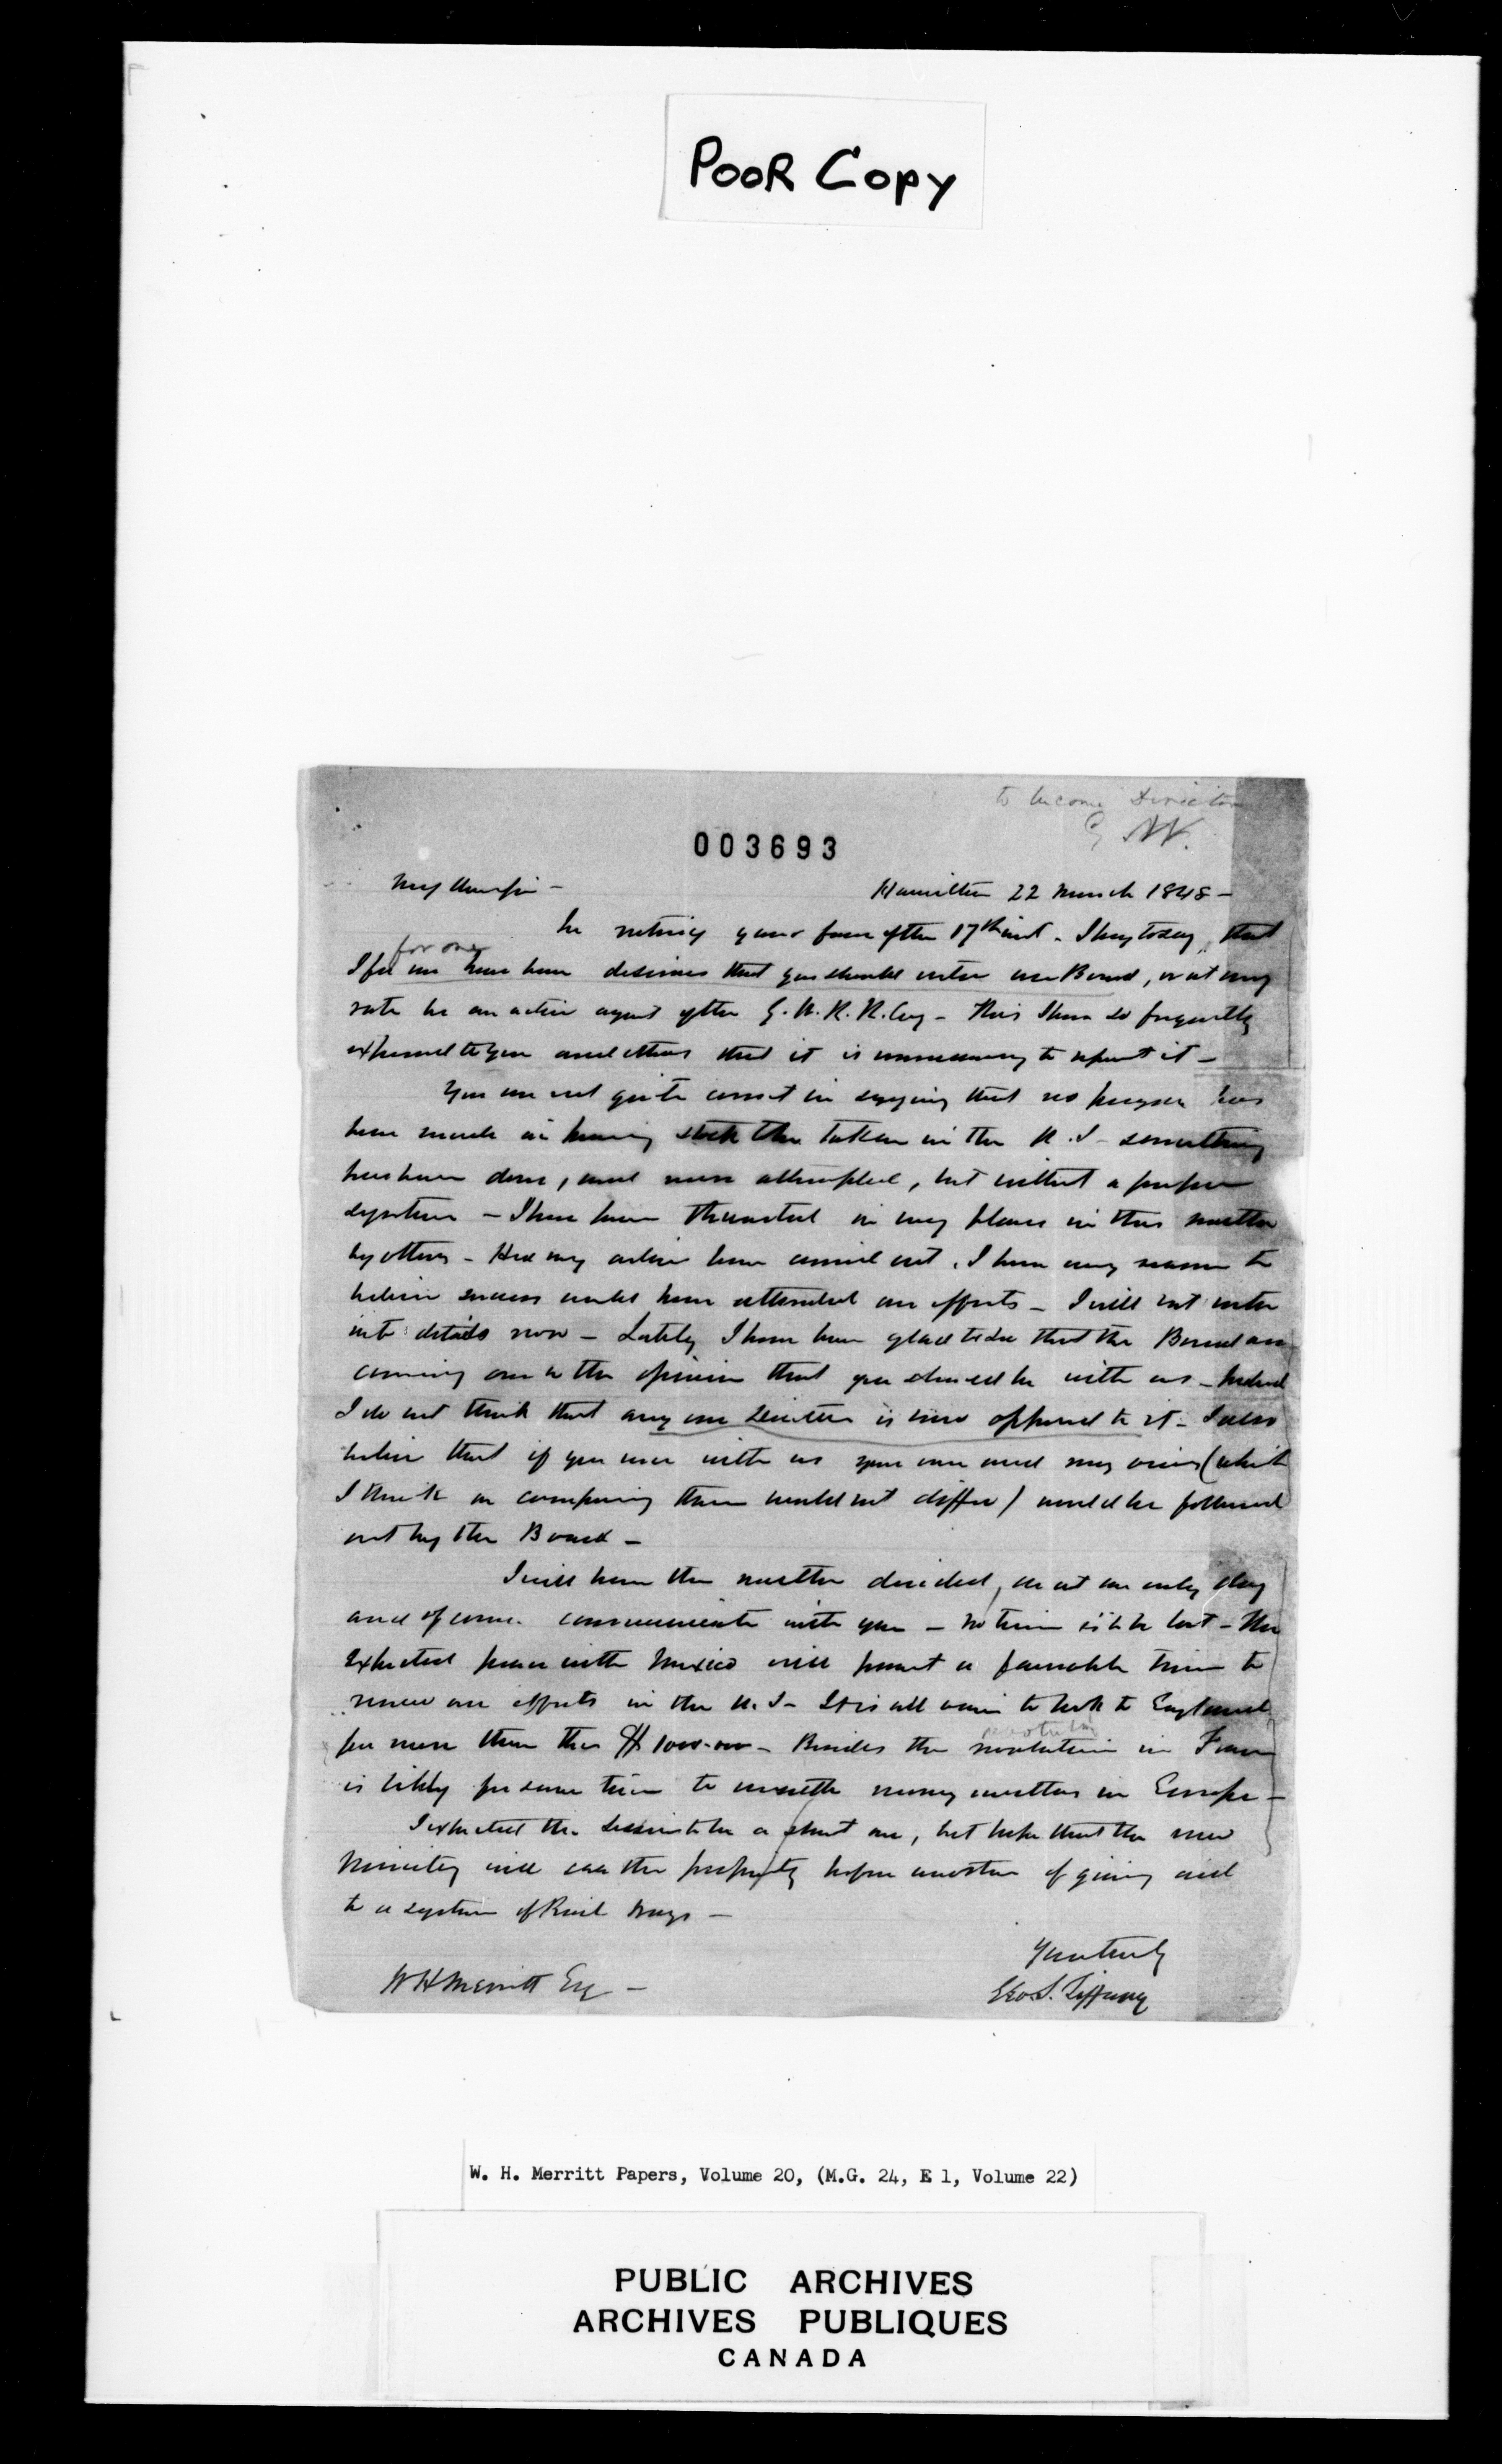 POOR COPY
to become Director
G W.
003693
My dear Sir –
Hamilton 22 March 1848 –
In noticing your favor of the 17th inst. I beg to say, that
for one
I for one have been desirous that you should enter our Board, or at any
rate be an active agent of the G. W. R. R. Coy – This I have so frequently
expressed to you and others that it is unnecessary to repeat it –
You are not quite correct in saying that no progress has
been made in having stock taken in the U. S – something
has been done, and more attempted, but without a proper
system – I have been thwarted in my plans in this matter
by others – Had my advice been carried out, I have every reason to
believe success would have attended our efforts – I will not enter
into details now – Lately I have been glad to see that the Board are
coming over to the opinion that you should be with us – Indeed
I do not think that any one Director is now opposed to it – I also
believe that if you were with us your own and my views (which
I think on comparing them would not differ) would be followed
out by the Board –
I will have the matter decided, at an early day
and of course communicate with you – No time is to be lost – The
expected peace with Mexico will present a favorable time to
renew our efforts in the U. S – It is all vain to look to England
revolution
for more than the 1000.000 – Besides the revolution in France
is likely for some time to unsettle money matters in Europe –
I expected the Session to be a short one, but hope that the new
Ministry will see the propriety of giving aid
to a system of Rail Ways –
Yours truly
Geo. S. Tiffany
W H Merritt Esq –
W. H. Merritt Papers, Volume 20, (M.G. 24, E 1, Volume 22)
PUBLIC ARCHIVES
ARCHIVES PUBLIQUES
CANADA